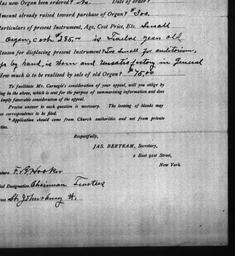 as new Organ been ordered? No. Date of order?
Amount already raised toward purchase of Organ? $500.
Particulars of present Instrument, Age, Cost Price, Etc. Small
Organ, cost 285.00 is Twelve years old,
Reason for displacing present Instrument? Too Small for auditorium,
by hand, is Worn and Unsatisfactory in General
How much is to be realized by sale of old Organ? $75.00
To facilitate Mr. Carnegie's consideration of your appeal, will you oblige by
ing in the above, which is sent for the purpose of summarizing information and does
imply favorable consideration of the appeal.
Precise answer to each question is necessary. The leaving of blanks may
on correspondence to be ignored.
* Application should come from Church authorities and not from private
ties.
Respectfully,
JAS. BERTRAM, Secretary,
2 East 91st Street,
New York.
ature. F. P. Hooker
al Designation Chairman Trustees
ess St. Johnsbury Vt.